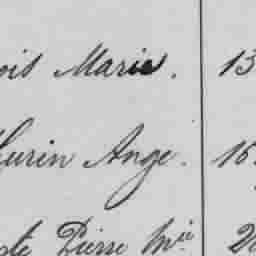 ois Marie. 13
hurin Ange. 16
de Pierre Mie 2